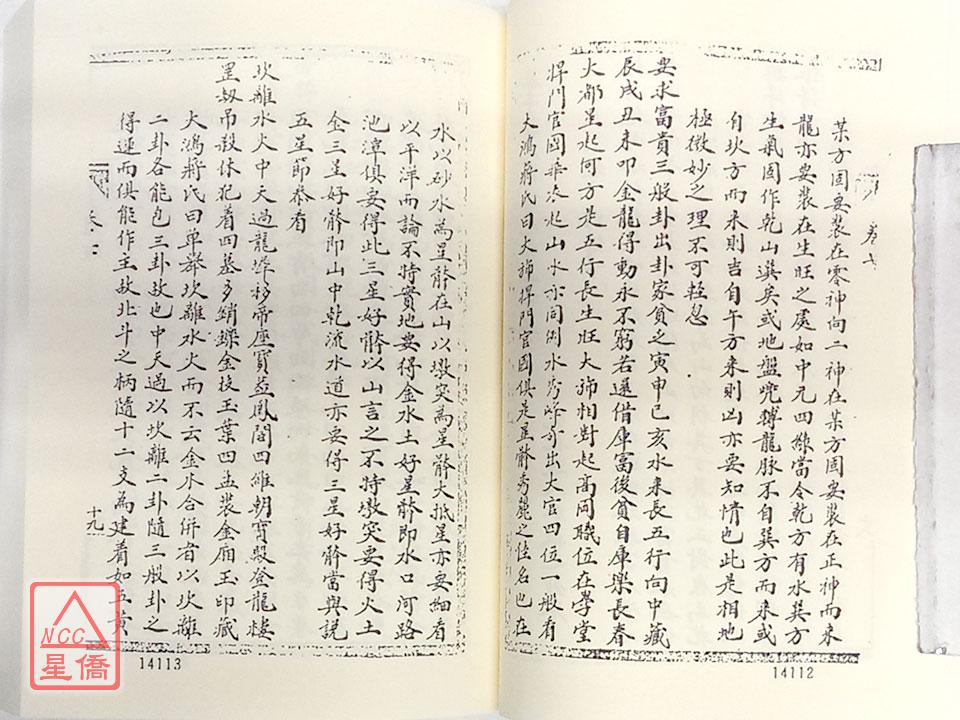 某方固要裝在零神向二神在某方固要裝在正神而來
龍亦要裝在生旺之處如中元四綠當令乾方有水巽方
生氣固作乾山巽矣或地盤兜轉龍脉不自巽方而來或
自坎方而來則吉自午方來則凶亦要知情也此是相地
極微妙之理不可輕忽
要求富貴三般卦出卦家貧之寅申巳亥水來長五行向中藏
辰戌丑未叩金龍得動永不窮若還借庫富後貧自庫樂長春
大都星起何方是五行長生旺大旆相對起高岡職位在學堂
捍門官國華表起山水亦同例水秀峰奇出大官四位一般看
大鴻蔣氏曰大旆捍門官國俱是星體秀麗之佳名也在
水以砂水為星體在山以墩突為星體大抵星亦要細看
以平洋而論不特實地要得金水土好星體即水口河路
池漳俱要得此三星好體以山言之不特墩突要得火土
金三星好體即山中乾流水道亦要得三星好體當與說
五星節參看
坎離水火中天過龍墀移帝座寶蓋鳳閣四維朝寶殿登龍樓
罡劫吊殺休犯着四墓多銷鑠金枝玉葉四孟裝金廂玉印藏
大鴻蔣氏曰單舉坎離水火而不云金水合併者以坎離
二卦各能包三卦故也中天過以坎離二卦隨三般卦之
得運而俱能作主故北斗之柄隨十二支為建着如五黃
卷七
十九
14112
14113
NCC
星僑